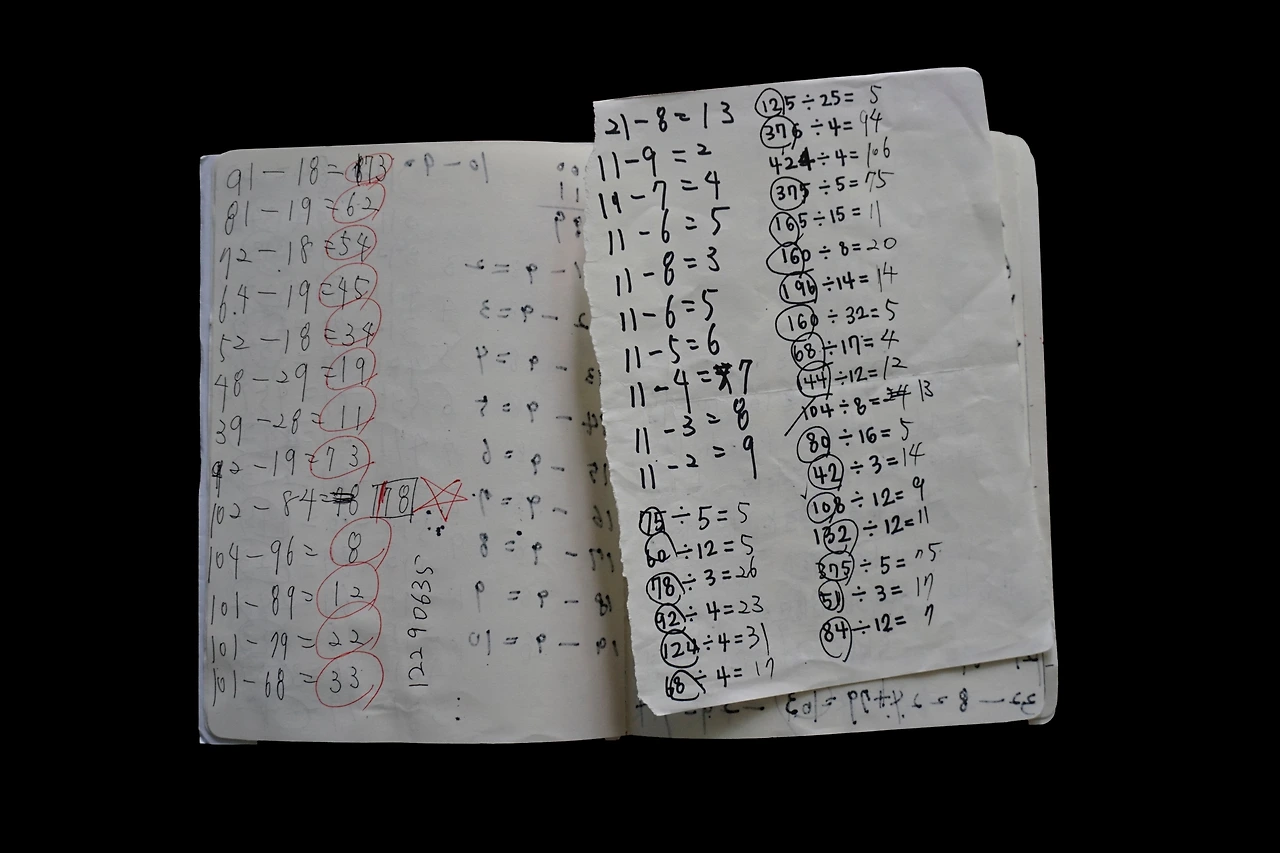 91 - 18 = 73
81 - 19 = 62
72 - 18 = 54
64 - 19 = 45
52 - 18 = 34
48 - 29 = 19
39 - 28 = 11
92 - 19 = 73
102 - 84 = 78
104 - 96 = 8
101 - 89 = 12
101 - 79 = 22
101 - 68 = 33
12290635
10 - 9 =
- 9 = 2
- 9 = 3
- 9 = 4
- 9 = 5
15 - 9 = 6
16 - 9 = 7
17 - 9 = 8
18 - 9 = 9
19 - 9 = 10
21 - 8 = 13
11 - 9 = 2
11 - 7 = 4
11 - 6 = 5
11 - 8 = 3
11 - 6 = 5
11 - 5 = 6
11 - 4 = 7
11 - 3 = 8
11 - 2 = 9
75 ÷ 5 = 5
60 ÷ 12 = 5
78 ÷ 3 = 26
92 ÷ 4 = 23
124 ÷ 4 = 31
68 ÷ 4 = 17
125 ÷ 25 = 5
376 ÷ 4 = 94
424 ÷ 4 = 106
375 ÷ 5 = 75
165 ÷ 15 = 11
160 ÷ 8 = 20
196 ÷ 14 = 14
160 ÷ 32 = 5
68 ÷ 17 = 4
144 ÷ 12 = 12
104 ÷ 8 = 13
80 ÷ 16 = 5
42 ÷ 3 = 14
108 ÷ 12 = 9
132 ÷ 12 = 11
375 ÷ 5 = 75
51 ÷ 3 = 17
84 ÷ 12 = 7